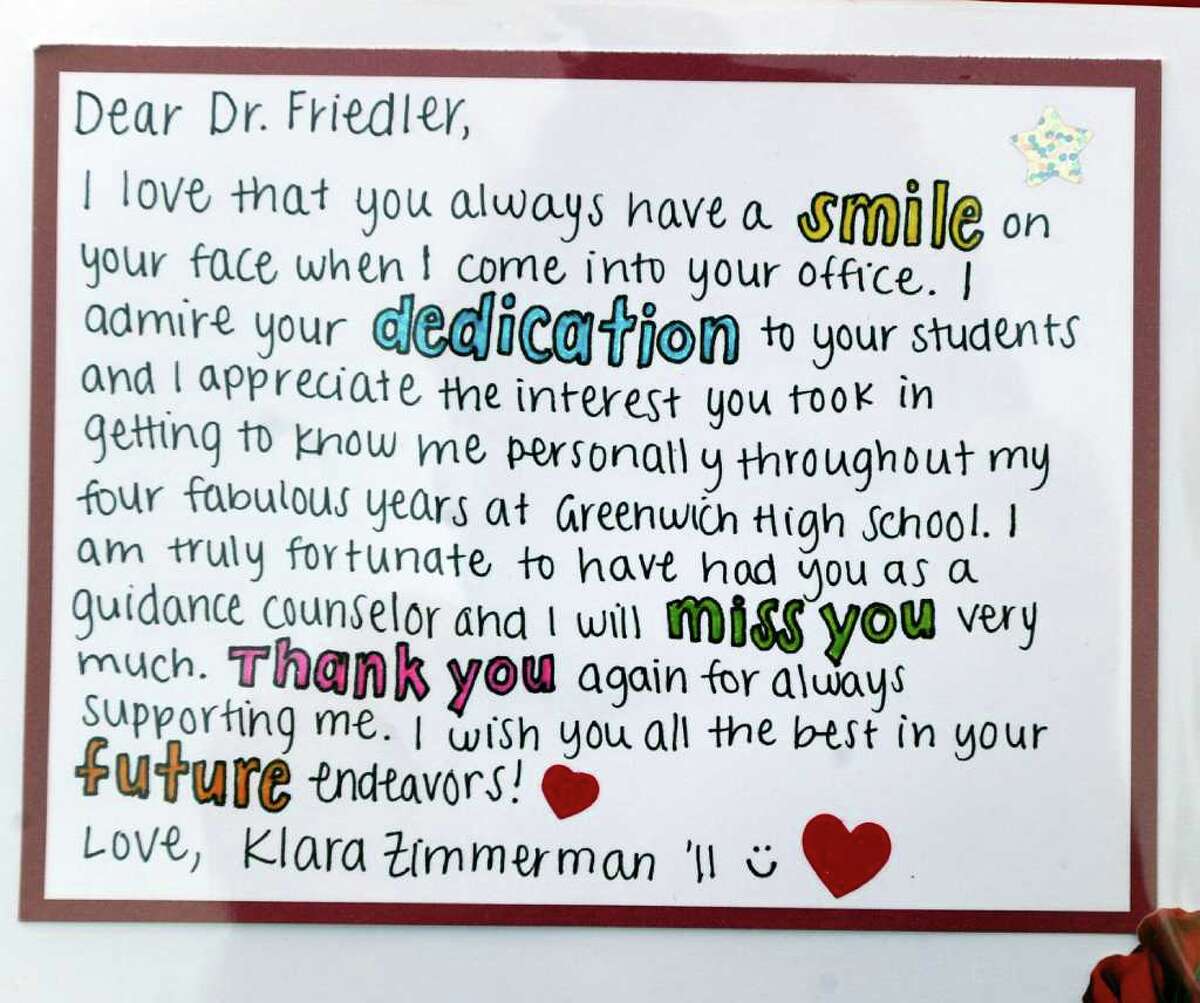 Dear Dr. Friedler,
I love that you always have a smile on
your face when I come into your office. I
admire your dedication to your students
and I appreciate the interest you took in
getting to know me personally throughout my
four fabulous years at Greenwich High School. I
am truly fortunate to have had you as a
guidance counselor and I will miss you very
much. Thank you again for always
supporting me. I wish you all the best in your
future endeavors!
Love, Klara Zimmerman '11